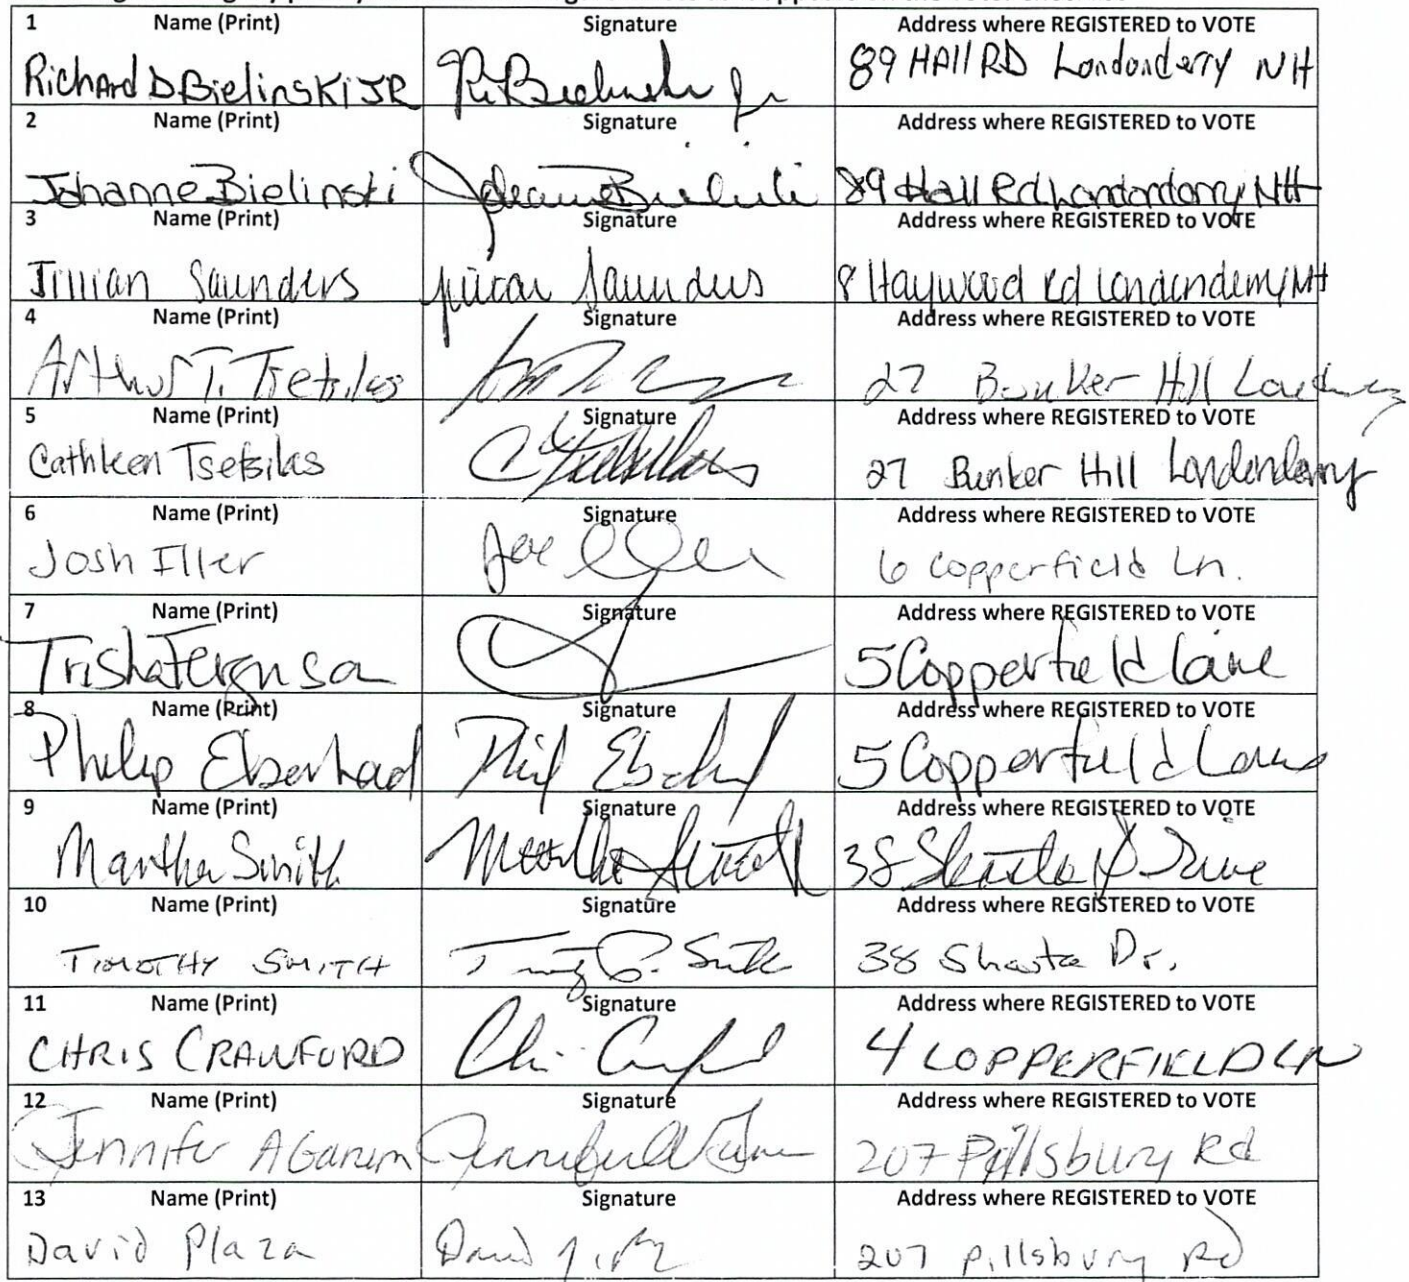 1 Name (Print) Signature Address where REGISTERED to VOTE
Richard D Bielinski JR Bielinski Jr 89 Hall RD Londonderry NH
2 Name (Print) Signature Address where REGISTERED to VOTE
Johanne Bielinski 89 Hall Rd Londonderry NH
3 Name (Print) Signature Address where REGISTERED to VOTE
Jillian Saunders Jillian Saunders 8 Haywood Rd Londonderry NH
4 Name (Print) Signature Address where REGISTERED to VOTE
Arthur T. Tsetsilas 27 Bunker Hill
5 Name (Print) Signature Address where REGISTERED to VOTE
Cathleen Tsetsilas 27 Bunker Hill Londonderry
6 Name (Print) Signature Address where REGISTERED to VOTE
Josh Iller 6 Copperfield Ln.
7 Name (Print) Signature Address where REGISTERED to VOTE
Trisha Ferguson 5 Copperfield Lane
8 Name (Print) Signature Address where REGISTERED to VOTE
Philip Eberhard Phil 5 Copperfield Lane
9 Name (Print) Signature Address where REGISTERED to VOTE
Martha Smith Martha Smith 38 Shasta Drive
10 Name (Print) Signature Address where REGISTERED to VOTE
TIMOTHY SMITH 38 Shasta Dr.
11 Name (Print) Signature Address where REGISTERED to VOTE
CHRIS CRAWFORD 4 COPPERFIELD LN
12 Name (Print) Signature Address where REGISTERED to VOTE
Jennifer A Ganem 207 Pillsbury Rd
13 Name (Print) Signature Address where REGISTERED to VOTE
David Plaza David 207 pillsbury Rd